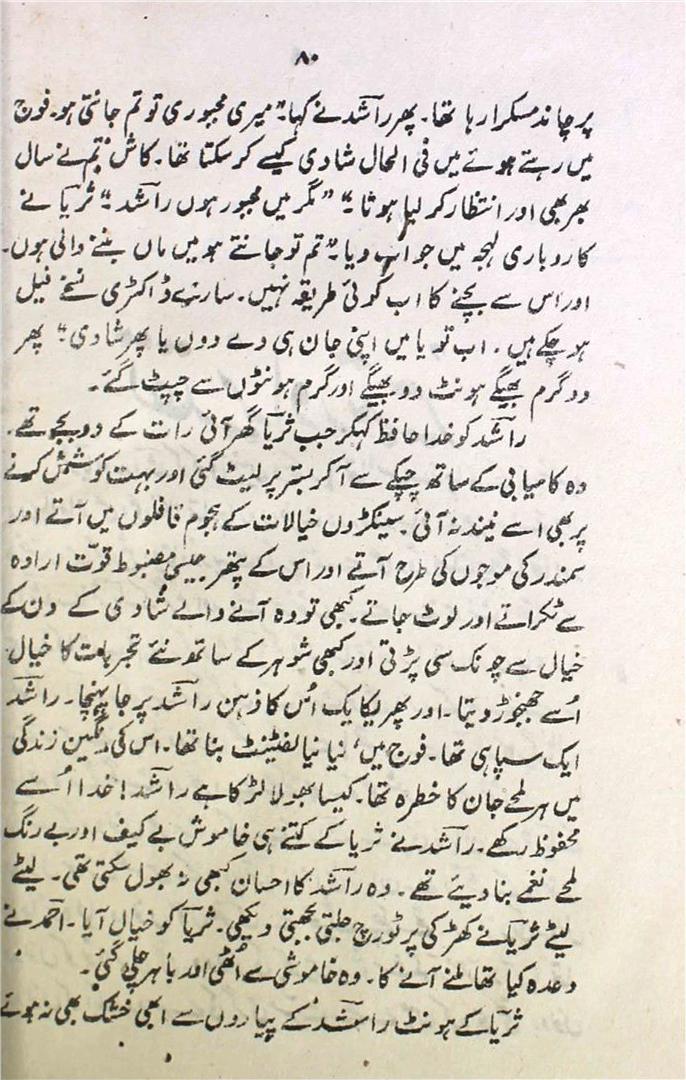 ۸۰
پر چاند مسکرا رہا تھا۔ پھر راشد نے کہا۔ "میری مجبوری تو تم جانتی ہو۔ فوج
میں رہتے ہوئے میں فی الحال شادی کیسے کر سکتا تھا۔ کاش تم نے سال
بھر بھی اور انتظار کر لیا ہوتا۔" "مگر میں مجبور ہوں راشد۔" ثریا نے
کاروباری لہجہ میں جواب دیا۔ "تم تو جانتے ہو میں ماں بننے والی ہوں۔
اور اس سے بچنے کا اب کوئی طریقہ نہیں۔ سارے ڈاکٹری نسخے فیل
ہو چکے ہیں۔ اب تو یا میں اپنی جان ہی دے دوں یا پھر شادی۔" پھر
دو گرم بھیگے ہونٹ دو بھیگے اور گرم ہونٹوں سے چپٹ گئے۔
راشد کو خدا حافظ کہکر جب ثریا گھر آئی رات کے دو بجے تھے۔
وہ کامیابی کے ساتھ چپکے سے آ کر بستر پر لیٹ گئی اور بہت کوشش کرنے
پر بھی اسے نیند نہ آئی۔ سینکڑوں خیالات کے ہجوم قافلوں میں آتے اور
سمندر کی موجوں کی طرح آتے اور اس کے پتھر جیسی مضبوط قوّت ارادہ
سے ٹکراتے اور لوٹ جاتے۔ کبھی تو وہ آنے والے شادی کے دن کے
خیال سے چونک سی پڑتی اور کبھی شوہر کے ساتھ نئے تجربات کا خیال
اُسے جھنجوڑ دیتا۔ اور پھر یکایک اُس کا ذہن راشد پر جا پہنچا۔ راشد
ایک سپاہی تھا۔ فوج میں، نیا نیا لفٹیننٹ بنا تھا۔ اس کی رنگین زندگی
میں ہر لمحے جان کا خطرہ تھا۔ کیسا بھولا لڑکا ہے راشد! خدا اُسے
محفوظ رکھے۔ راشد نے ثریا کے کتنے ہی خاموش بے کیف اور بے رنگ
لمحے نغمے بنا دیئے تھے۔ وہ راشد کا احسان کبھی نہ بھول سکتی تھی۔ لیٹے
لیٹے ثریا نے کھڑکی پر ٹورچ جلتی بجھتی دیکھی۔ ثریا کو خیال آیا۔ احمد نے
وعدہ کیا تھا ملنے آنے کا۔ وہ خاموشی سے اُٹھی اور باہر چلی گئی۔
ثریا کے ہونٹ راشد کے پیاروں سے ابھی خشک بھی نہ ہوئے